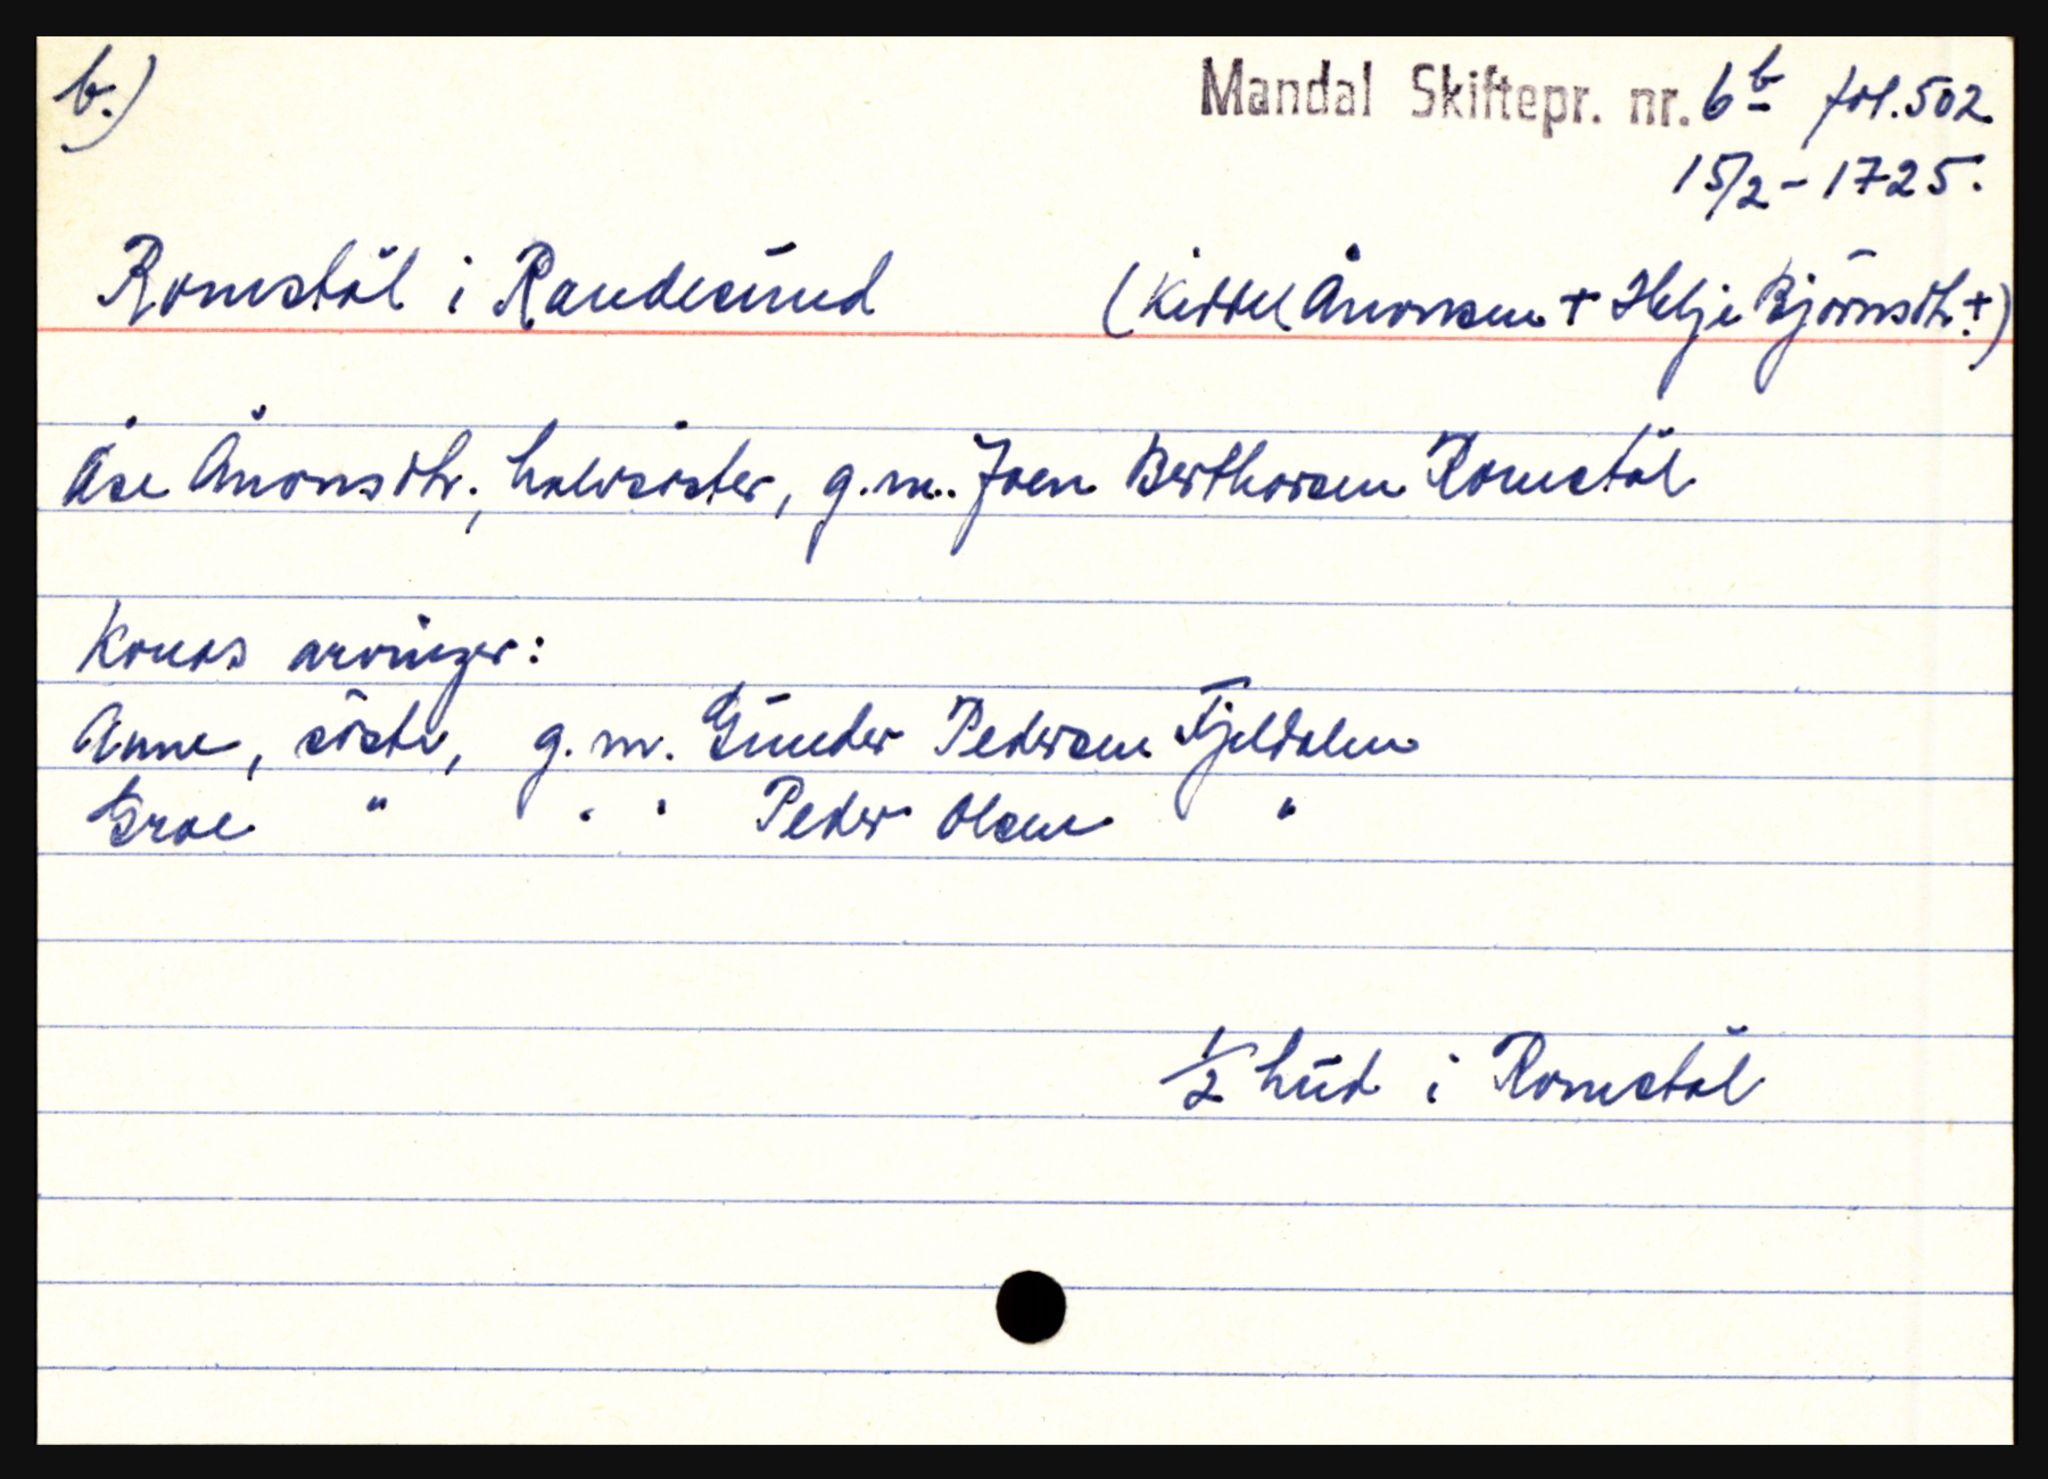 b.)
Mandal Skiftepr. nr. 6b fol. 502
15/2 - 1725.
Romstöl i Randesund (Kittel Ånonsen + Helje Björnsdtr. +)
Åse Ånonsdtr., halvsöster, g.m. Joen Berthorsen Romstöl
Konas arvinger:
Anne, söster, g. m. Gunder Pedersen Fjeldalen
Groe " " " Peder Olsen "
1/2 hud i Romstöl